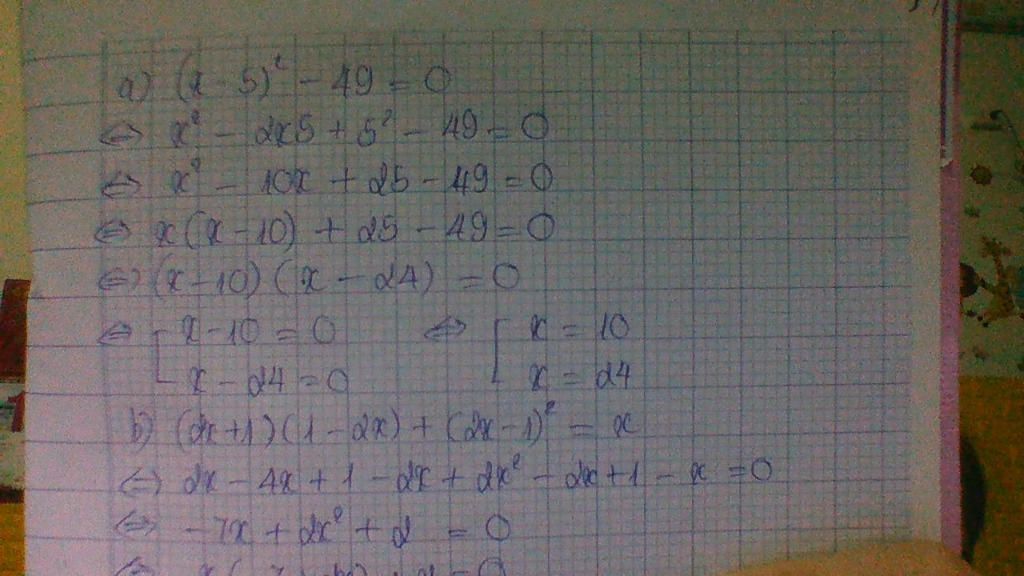 a) (x - 5)² - 49 = 0
⇔ x² - 2x5 + 5² - 49 = 0
⇔ x² - 10x + 25 - 49 = 0
⇔ x(x - 10) + 25 - 49 = 0
⇔ (x - 10)(x - 24) = 0
⇔ [ x - 10 = 0 ⇔ [ x = 10
x - 24 = 0 x = 24
b) (2x+1)(1 - 2x) + (2x - 1)² = x
⇔ 2x - 4x + 1 - 2x + 2x² - 2x + 1 - x = 0
⇔ -7x + 2x² + 2 = 0